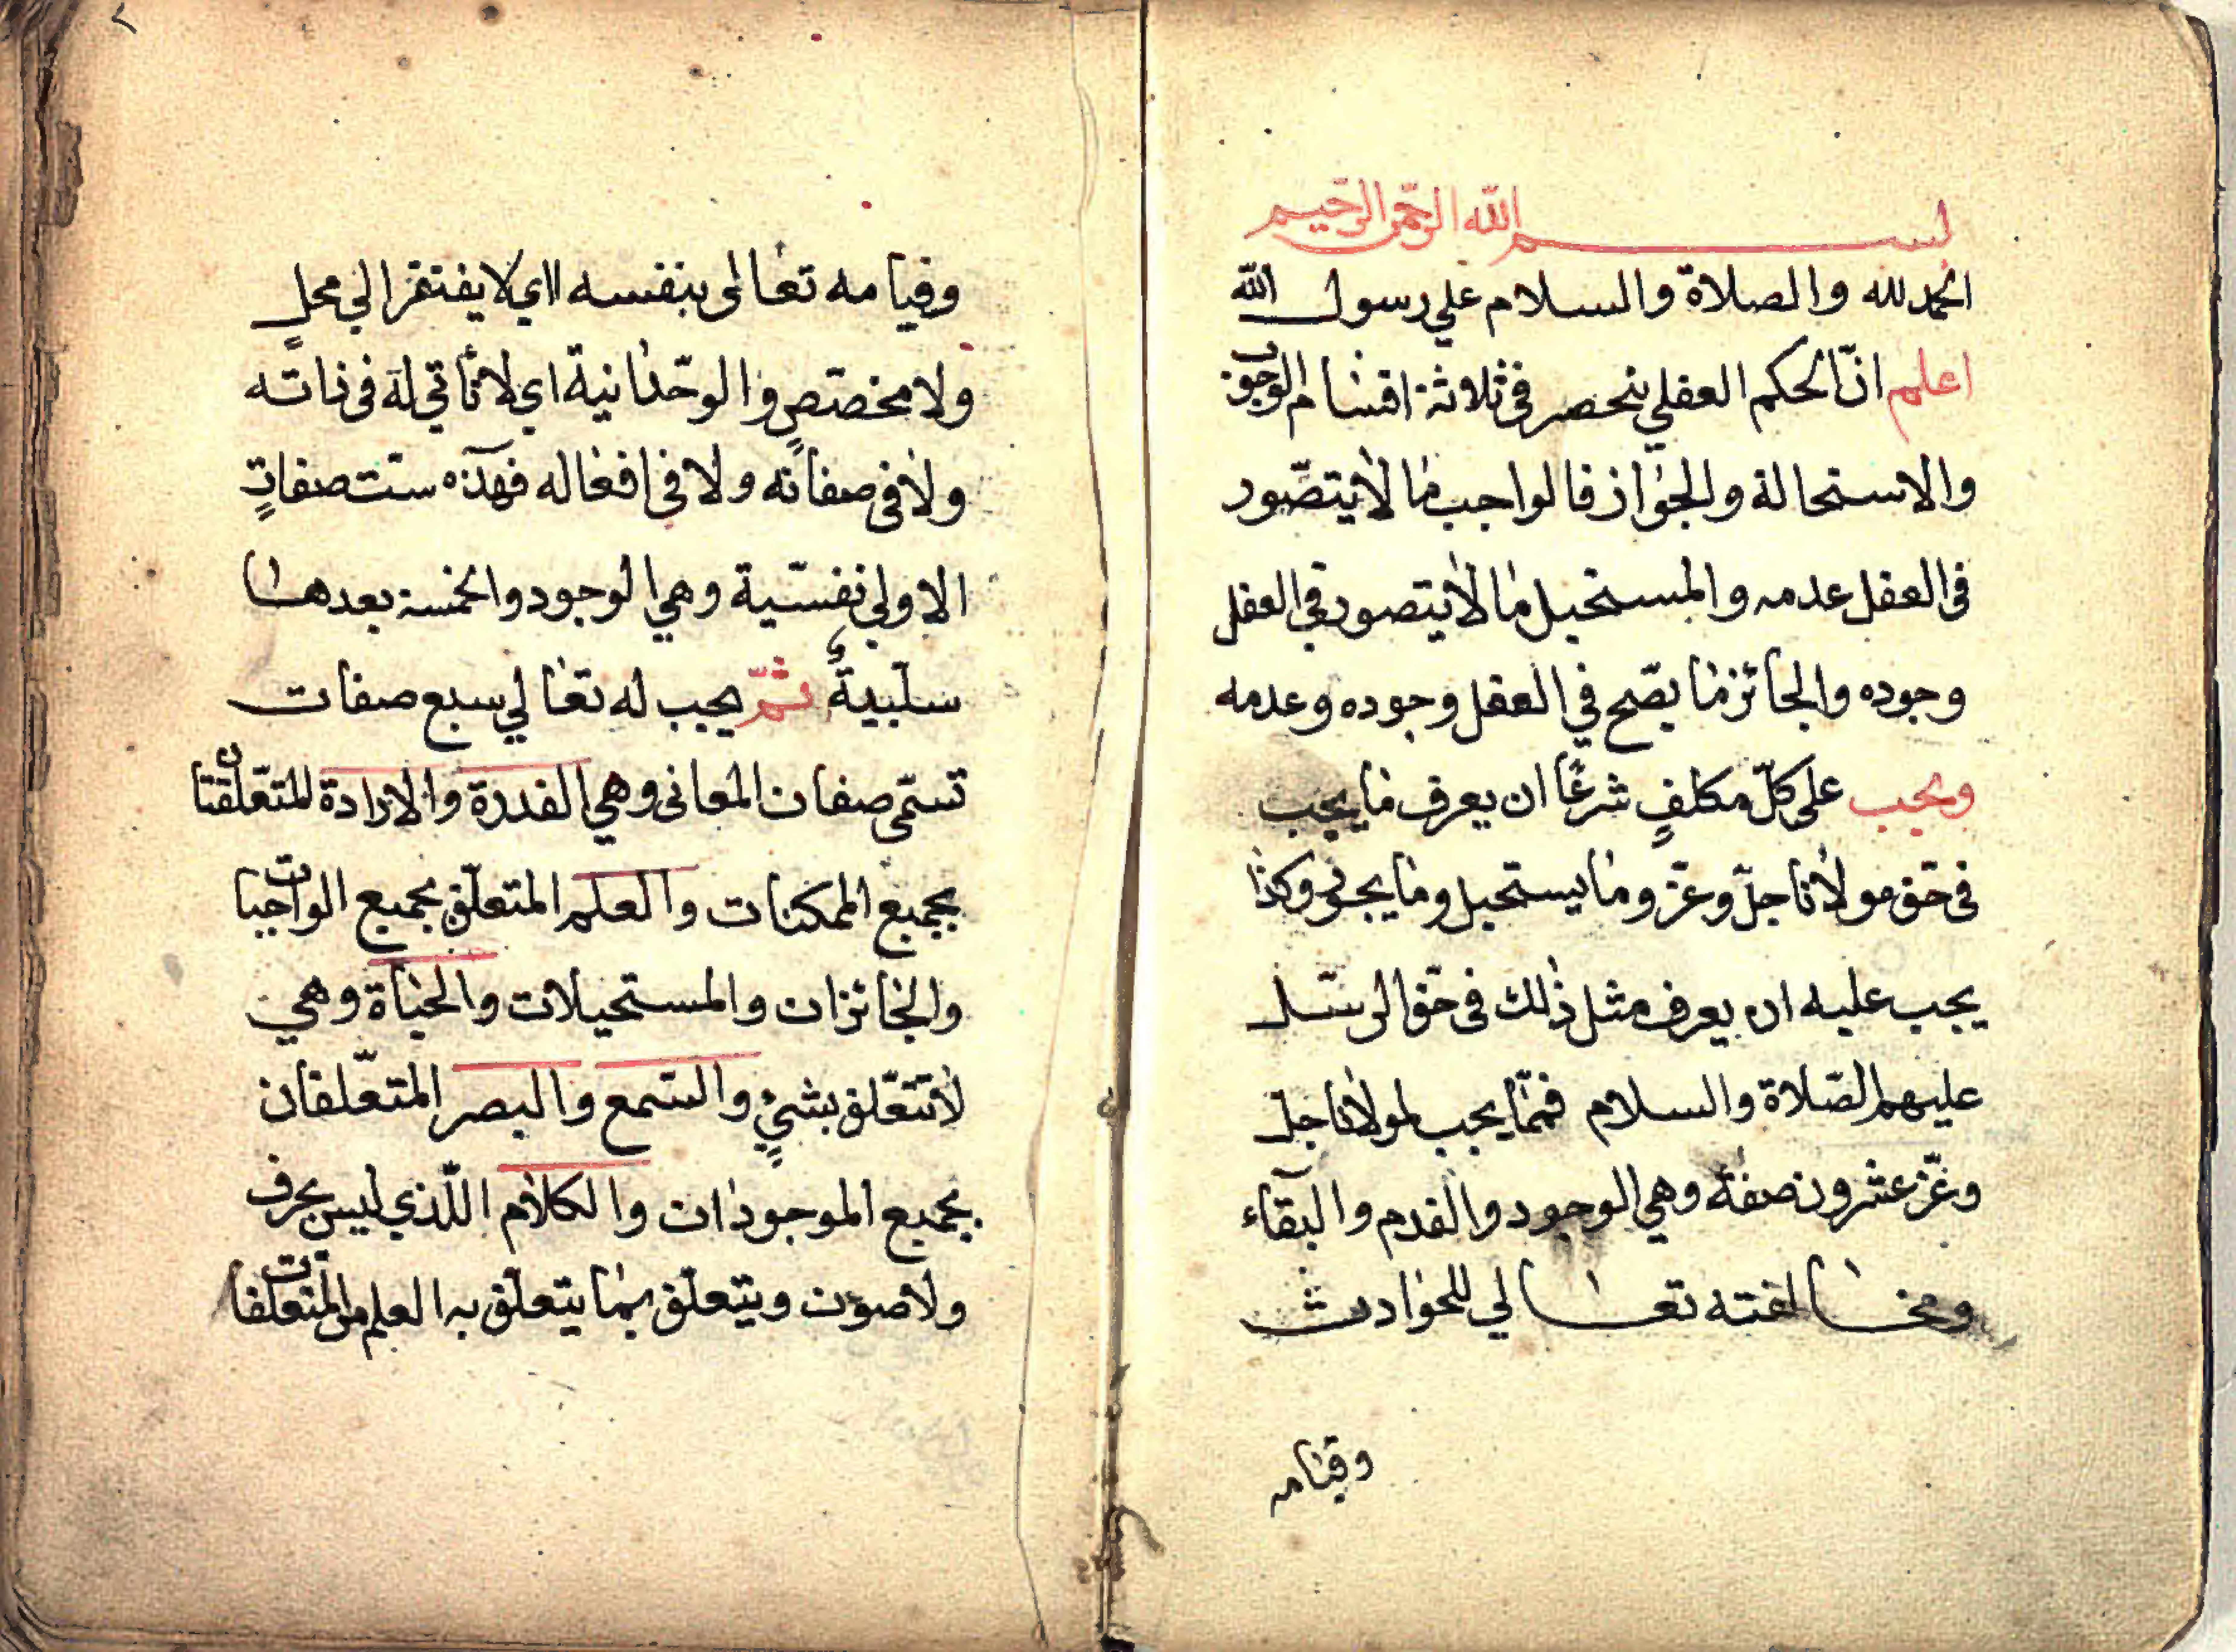 بسم الله الرحمن الرحيم
الحمد لله والصلاة والسلام علي رسول الله
اعلم انّ الحكم العقلي ينحصر في ثلاثة اقسام الوجوب
والاستحالة والجواز فالواجب ما لا يتصّور
في العقل عدمه والمستحيل ما لا يتصور في العقل
وجوده والجائز ما يصّح في العقل وجوده وعدمه
ويجب على كلّ مكلفٍ شرعًا ان يعرف ما يجب
في حقّ مولانا جلّ وعزّ وما يستحيل وما يجوز وكذا
يجب عليه ان يعرف مثل ذلك في حق الرسل
عليهم الصّلاة والسلام فممّا يجب لمولانا جلّ
وعزّ عشرون صفة وهي الوجود والقدم والبقآء
ومخالفته تعالي للحوادث
وقيامه
٢
وقيامه تعالى بنفسه اي لا يفتقر الي محلٍ
ولا مخصّصٍ والوحدانية اي لا ثاني له في ذاته
ولا في صفاته ولا في افعاله فهذه ست صفاتٍ
الاولي نفسّية وهي الوجود والخمسة بعدها
سلبيةٌ ثمّ يجب له تعالي سبع صفات
تسمّى صفات المعاني وهي القدرة والارادة المتعّلقتان
بجميع الممكنات والعلم المتعلّق بجميع الواجبات
والجائزات والمستحيلات والحياة وهي
لا تتعّلق بشيءٍ والسّمع والبصر المتعّلقان
بجميع الموجودات والكلام اللّذي ليس بحرف
ولا صوت ويتعلّق بما يتعلّق به العلم من المتعلّقات